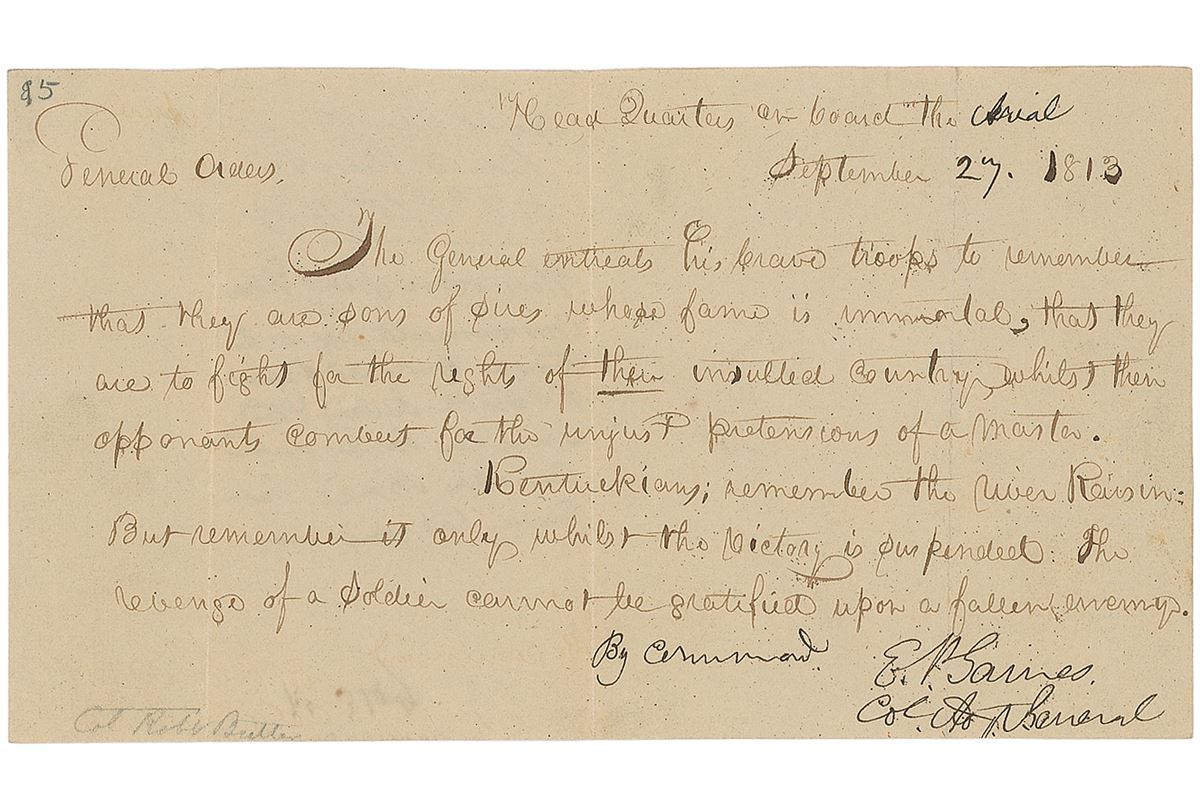 85
Head Quarters on board the Arial
General Orders,
September 27. 1813
The General entreats his brave troops to remember
that they are sons of sires whose fame is immortal, that they
are to fight for the rights of their insulted Country, whilst their
opponants combat for the unjust pretensions of a Master.
Kentuckians; remember the river Raisin:
But remember it only whilst the Victory is suspended. The
revenge of a Soldier cannot be gratified upon a fallen enemy.
By Command.
E. P. Gaines.
Col. Adj. General
Col Robt Butler